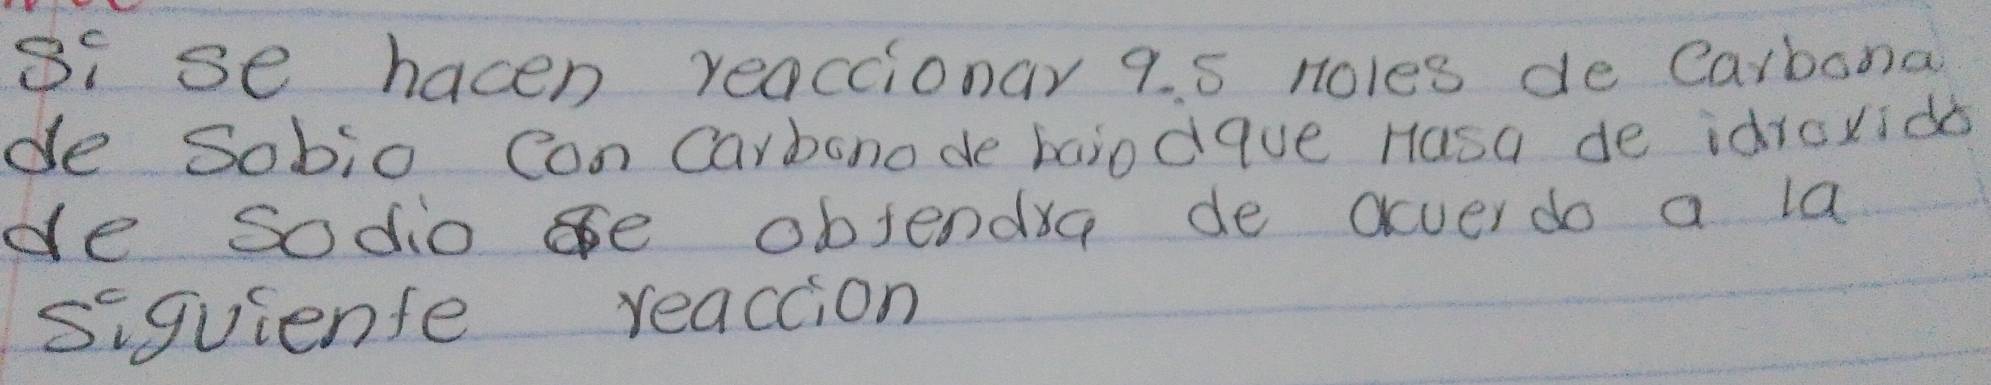 Si se hacen reaccionar 9.5 Moles de Carbona
de Sobio Con Carbono de baio dque Masa de idroxido
de Sodio se obtendra de acuerdo a la
siguiente reaccion